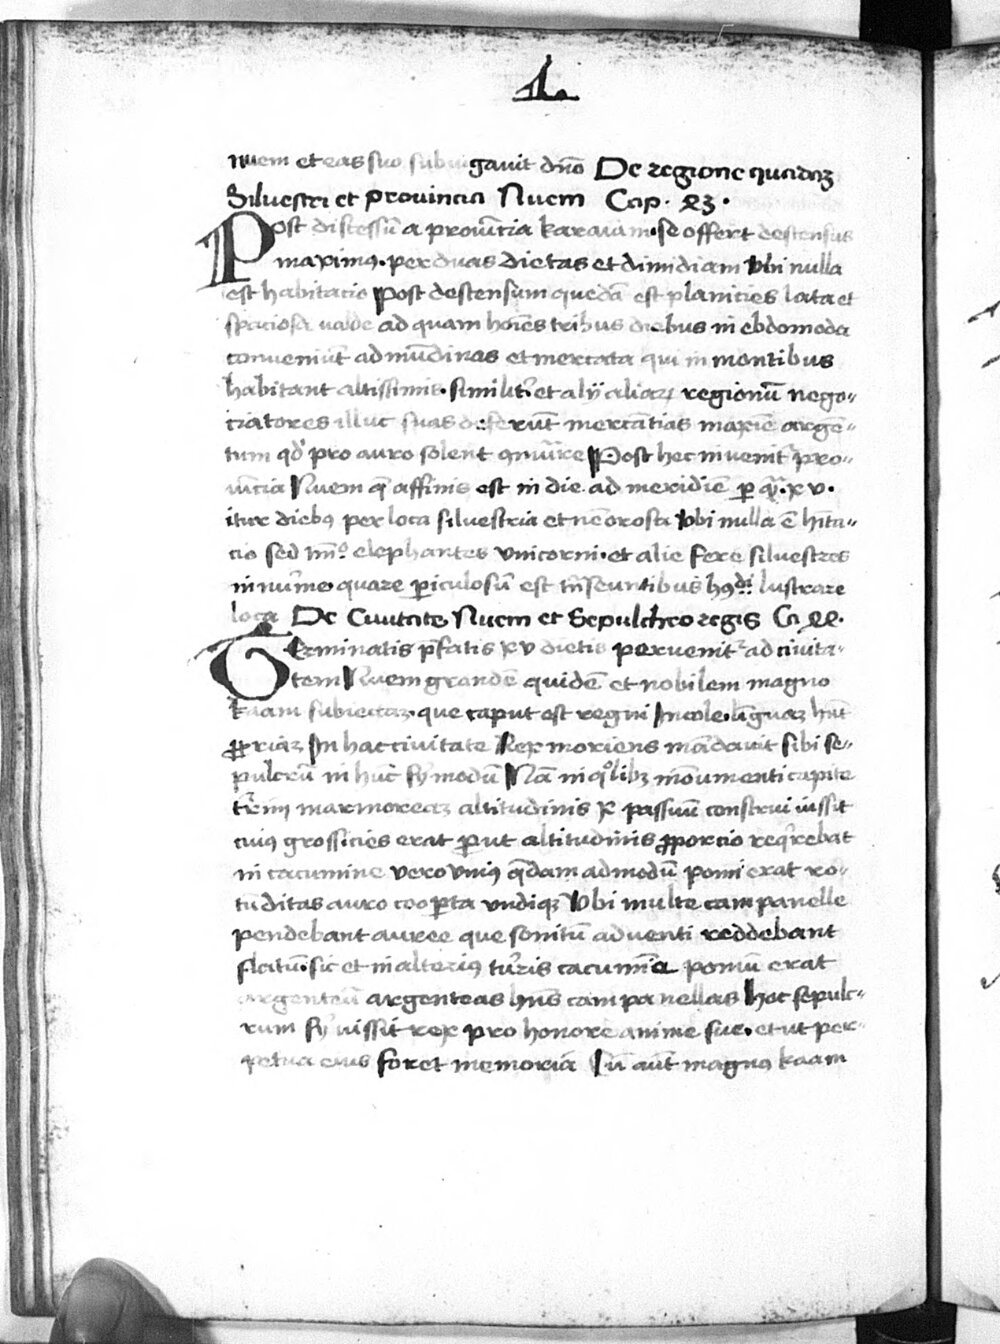 L
nuem et eas suo subiugauit dño De regione quadaʒ
Siluestri et prouincia Nuem Cap. 43.
Post discessū a prouītia karaiam. se offert descensus
maximus. per duas dietas et dimidiam Vbi nulla
est habitatio Post descensum quedā est planicies lata et
spatiosa valde ad quam hoīes tribus diebus in ebdomoda
conueniūt ad mūdinas et mercata qui in montibus
habitant altissimis. similiter et alij aliarꝝ regionū nego-
tiatores illuc suas deferūt mercātias maxīe argē-
tum qď pro auro solent ꝯmutare Post hec inuenitur pro-
uītia Nuem q̄ affinis est in die ad meridiē ꝑ qua. xv.
itur diebꝯ per loca siluestria et nēorosa Vbi nulla ē hīta-
tio sed imo elephantes vnicorni. et alie fere siluestres
innumere quare ꝑiculosū est trāseuntibus hꝯōi lustrare
loca De Ciuitate Nuem et Sepulchro regis Ca
Terminatis p̄fatis xv dietis peruenitur ad ciuita-
tem Nuem grandē quidē et nobilem magno
kaam subiectaʒ. que caput est regni Incole. linguaʒ hn̄t
ꝓpriāʒ In hac ciuitate Rex moriens mādauit sibi se-
pulcrū in hūc modū Nā in qͦlibʒ monumenti capite
turrim marmoreaʒ altitudinis x passuū construi iussit
cuius grossicies erat prout altitudinis ꝓporcio requirebat
in cacumine vero vniꝯ q̄dam admodū pomi erat ro-
tūditas auro cooꝑta vndiqʒ Vbi multe campanelle
pendebant auree que sonitū ad venti reddebant
flatū. sic et in alteriꝯ turris cacumīe pomū erat
argenteū argenteas hn̄s campanellas Hoc sepulc-
rum sꝫ iussit rex pro honore anime sue. et ut per-
petua eius foret memoria Cū aūt magnus kaam